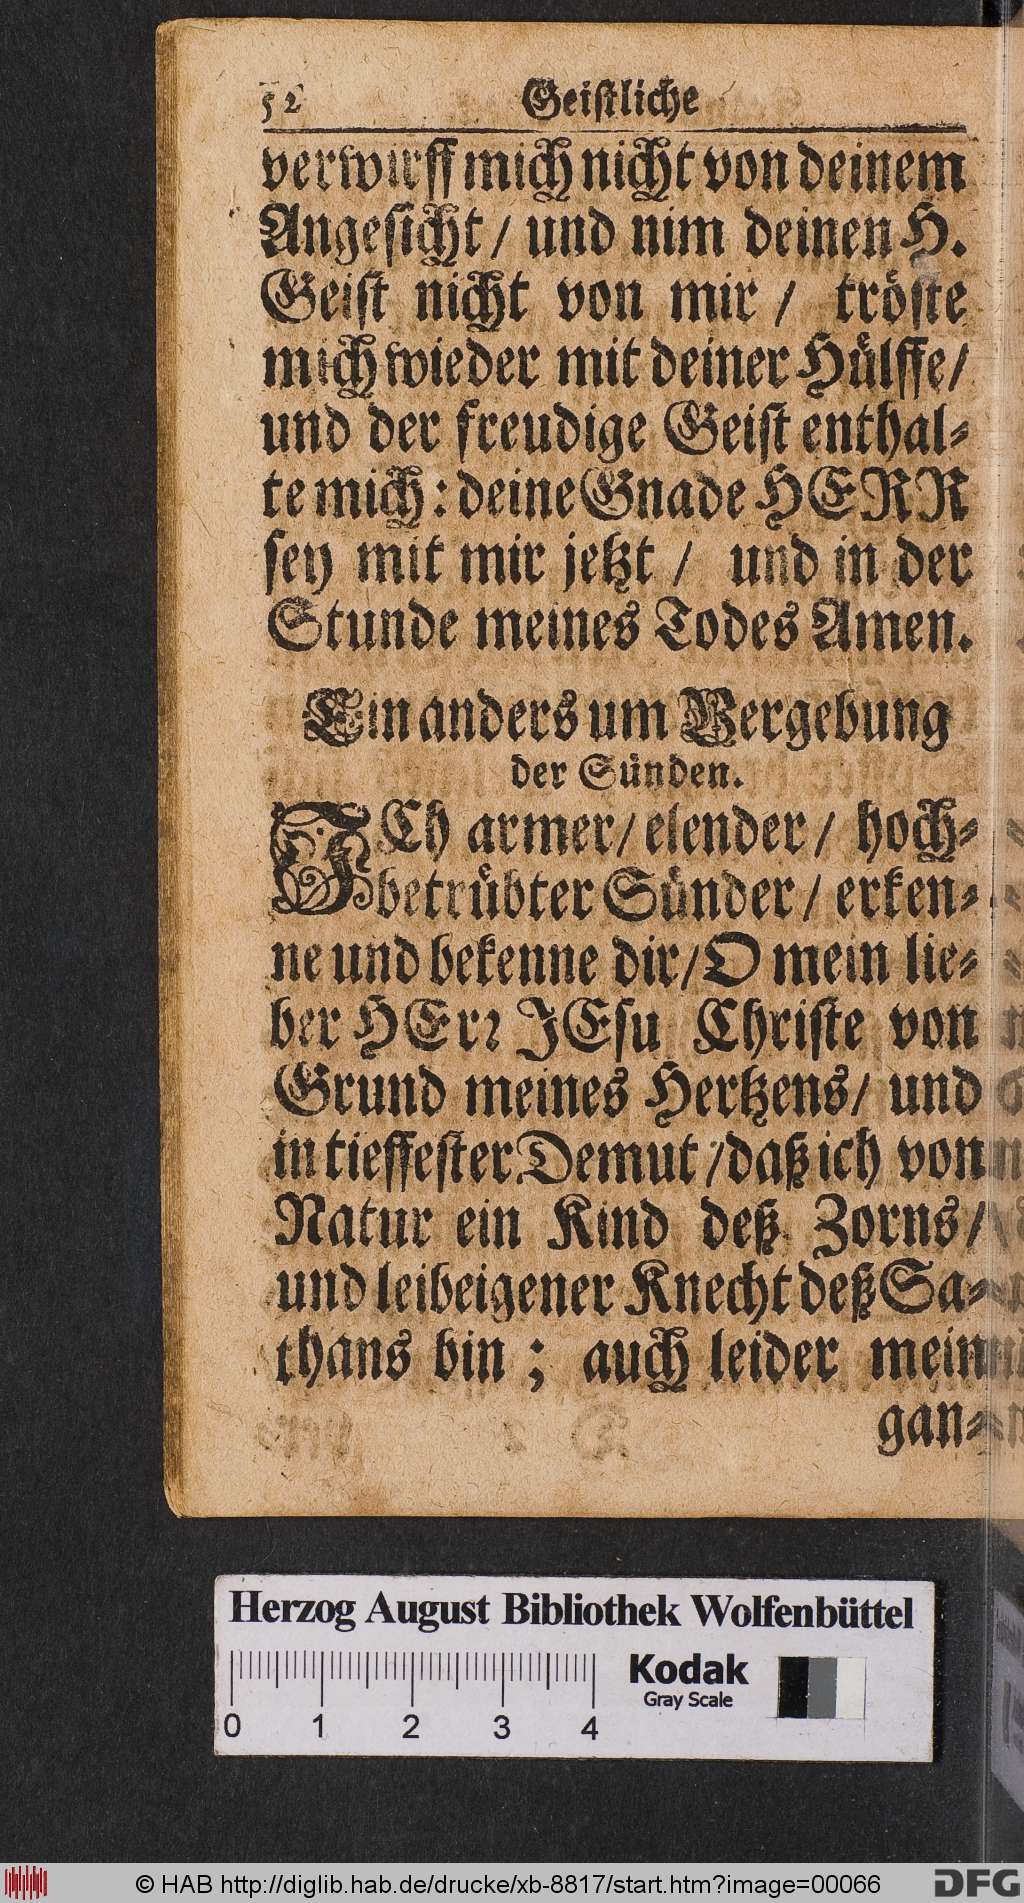 52 Geistliche
verwirff mich nicht von deinem
Angesicht / und nim deinen H.
Geist nicht von mir / tröste
mich wieder mit deiner Hülffe /
und der freudige Geist enthal-
te mich: deine Gnade HERR
sey mit mir jetzt / und in der
Stunde meines Todes Amen.
Ein anders um Vergebung
der Sünden.
ICh armer / elender / hoch-
betrübter Sünder / erken-
ne und bekenne dir / O mein lie-
ber HErr JEsu Christe von
Grund meines Hertzens / und
in tieffester Demut / daß ich von
Natur ein Kind deß Zorns /
und leibeigener Knecht deß Sa-
thans bin ; auch leider mein
gan-
Herzog August Bibliothek Wolfenbüttel
Kodak
Gray Scale
0 1 2 3 4
© HAB http://diglib.hab.de/drucke/xb-8817/start.htm?image=00066
DFG